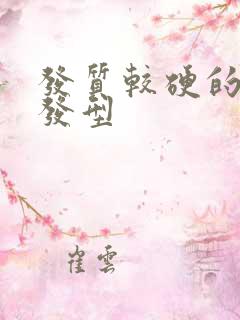 發質較硬的
發型
崔雲